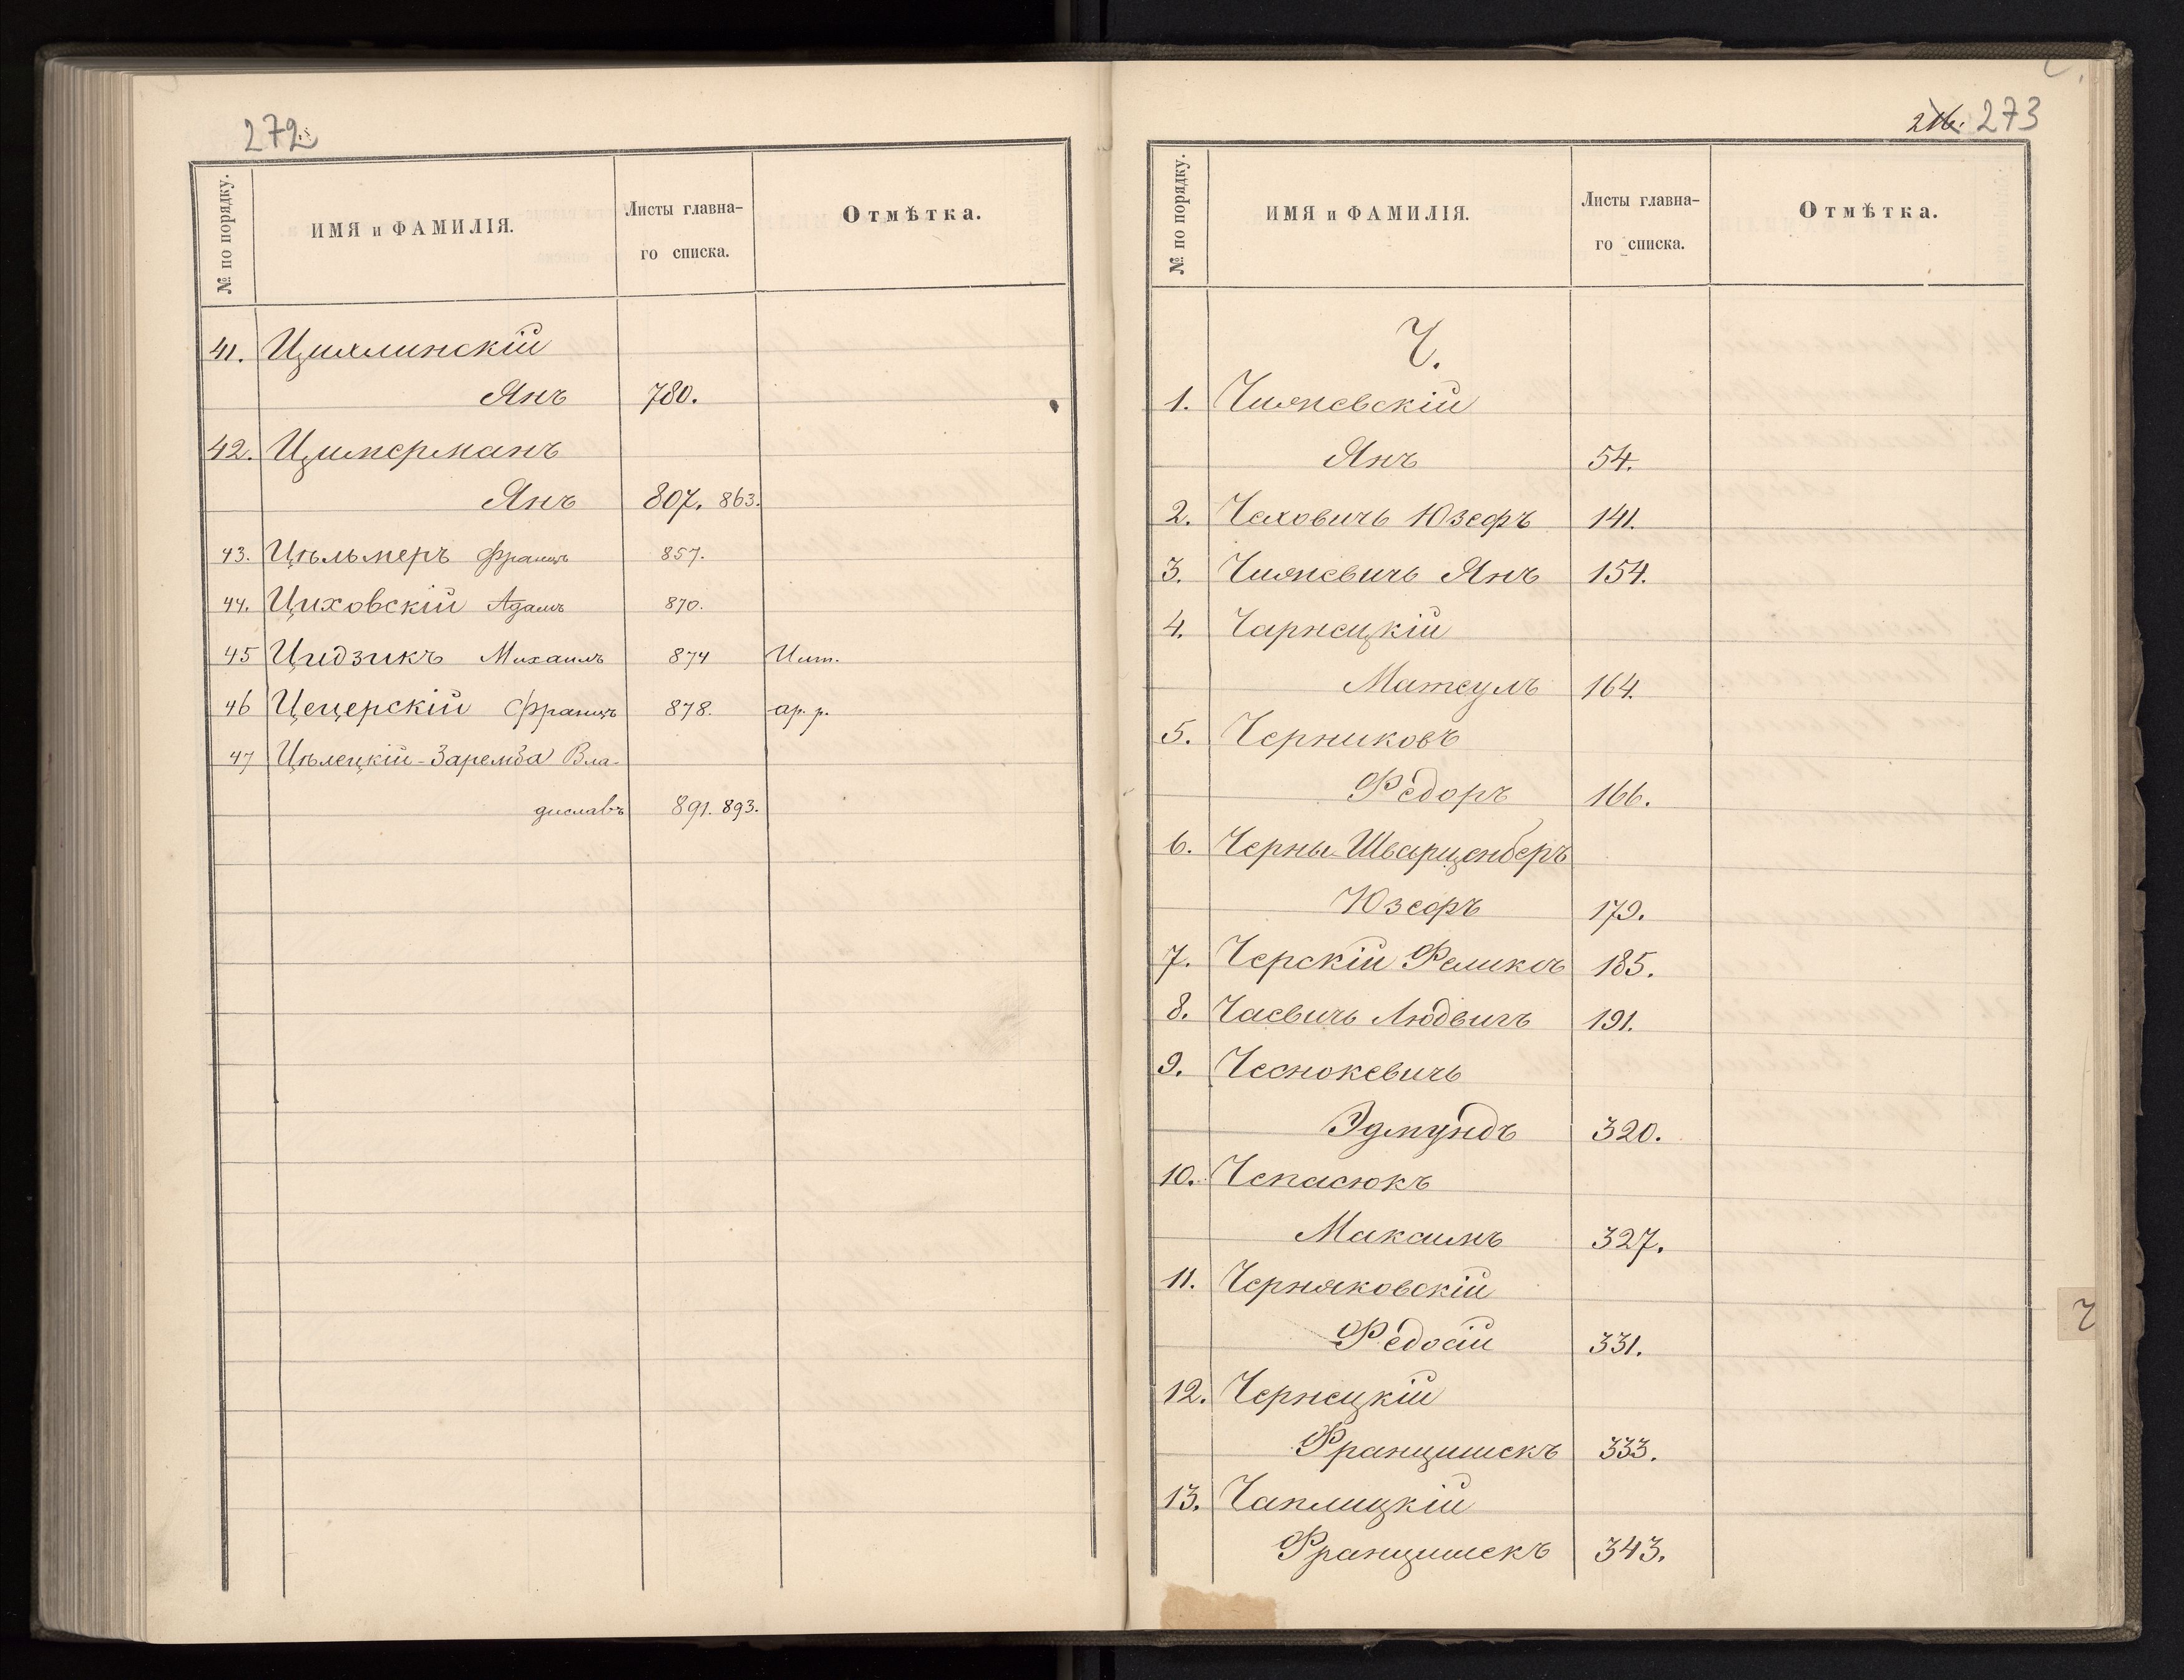 272
№ по порядку.
ИМЯ и ФАМИЛІЯ.
Листы главна-
го списка.
Отмѣтка.
41. Цихлинскій
Янъ 780.
42. Цимерманъ
Янъ 807. 863.
43. Цѣльмеръ Францъ 857.
44. Циховскій Адамъ 870.
45 Цидзикъ Михаилъ 874
46 Цецерскій Францъ 878. ар. р.
47 Цѣлецкій-Заремба Вла-
диславъ 891. 893.
273
№ по порядку.
ИМЯ и ФАМИЛІЯ.
Листы главна-
го списка.
Отмѣтка.
Ч.
1. Чижевскій
Янъ 54.
2. Чаховичъ Юзефъ 141.
3. Чижевичъ Янъ 154.
4. Чарнецкій
Матеушъ 164.
5. Черниковъ
Ѳедоръ 166.
6. Черны-Шварценберъ
Юзефъ 179.
7. Черскій Феликсъ 185.
8. Чаевичъ Людвигъ 191.
9. Чеснокевичъ
Эдмундъ 320.
10. Чепасюкъ
Максимъ 327.
11. Черняковскій
Федосій 331.
12. Чернецкій
Францишекъ 333.
13. Чаплицкій
Францишекъ 343.
Ч